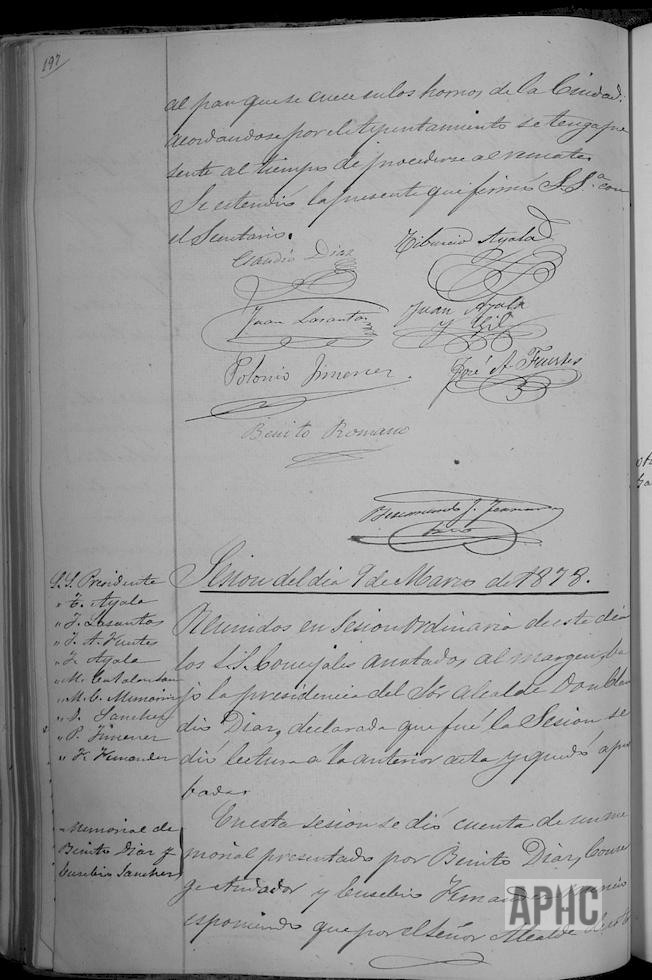 197
al pan que se cuece en los hornos de la Ciudad:
acordandose por el Ayuntamiento se tenga pre
sente al tiempo de procederse al remate.
Se estendió la presente que firmó S.Sª con
el Secretario.
Claudio Diaz
Tiburcio Ayala
Juan Lasantos
Juan Ayala
y Gil
Polonio Jimenez
José A. Fuertes
Benito Romano
Sesion del dia 9 de Marzo de 1878.
S.S. Presidente
" T. Ayala
" J. Lasantos
" J. A. Fuertes
" J. Ayala
" M. Catalan
" M. C.
" Sanchez
" P. Jimenez
" Hernandez
Reunidos en Sesion Ordinaria de este dia
los S.S. Concejales anotados al margen, ba
jo la presidencia del Sór Alcalde Don Clau
dio Diaz, declarada que fué la Sesion se
dió lectura a la anterior acta y quedó apro
bada.
Memorial de
Benito Diaz y
Eusebio Sanchez
En esta sesion se dió cuenta de un me
morial presentado por Benito Diaz,
y Eusebio
esponiendo que por el Señor Alcalde
APHC